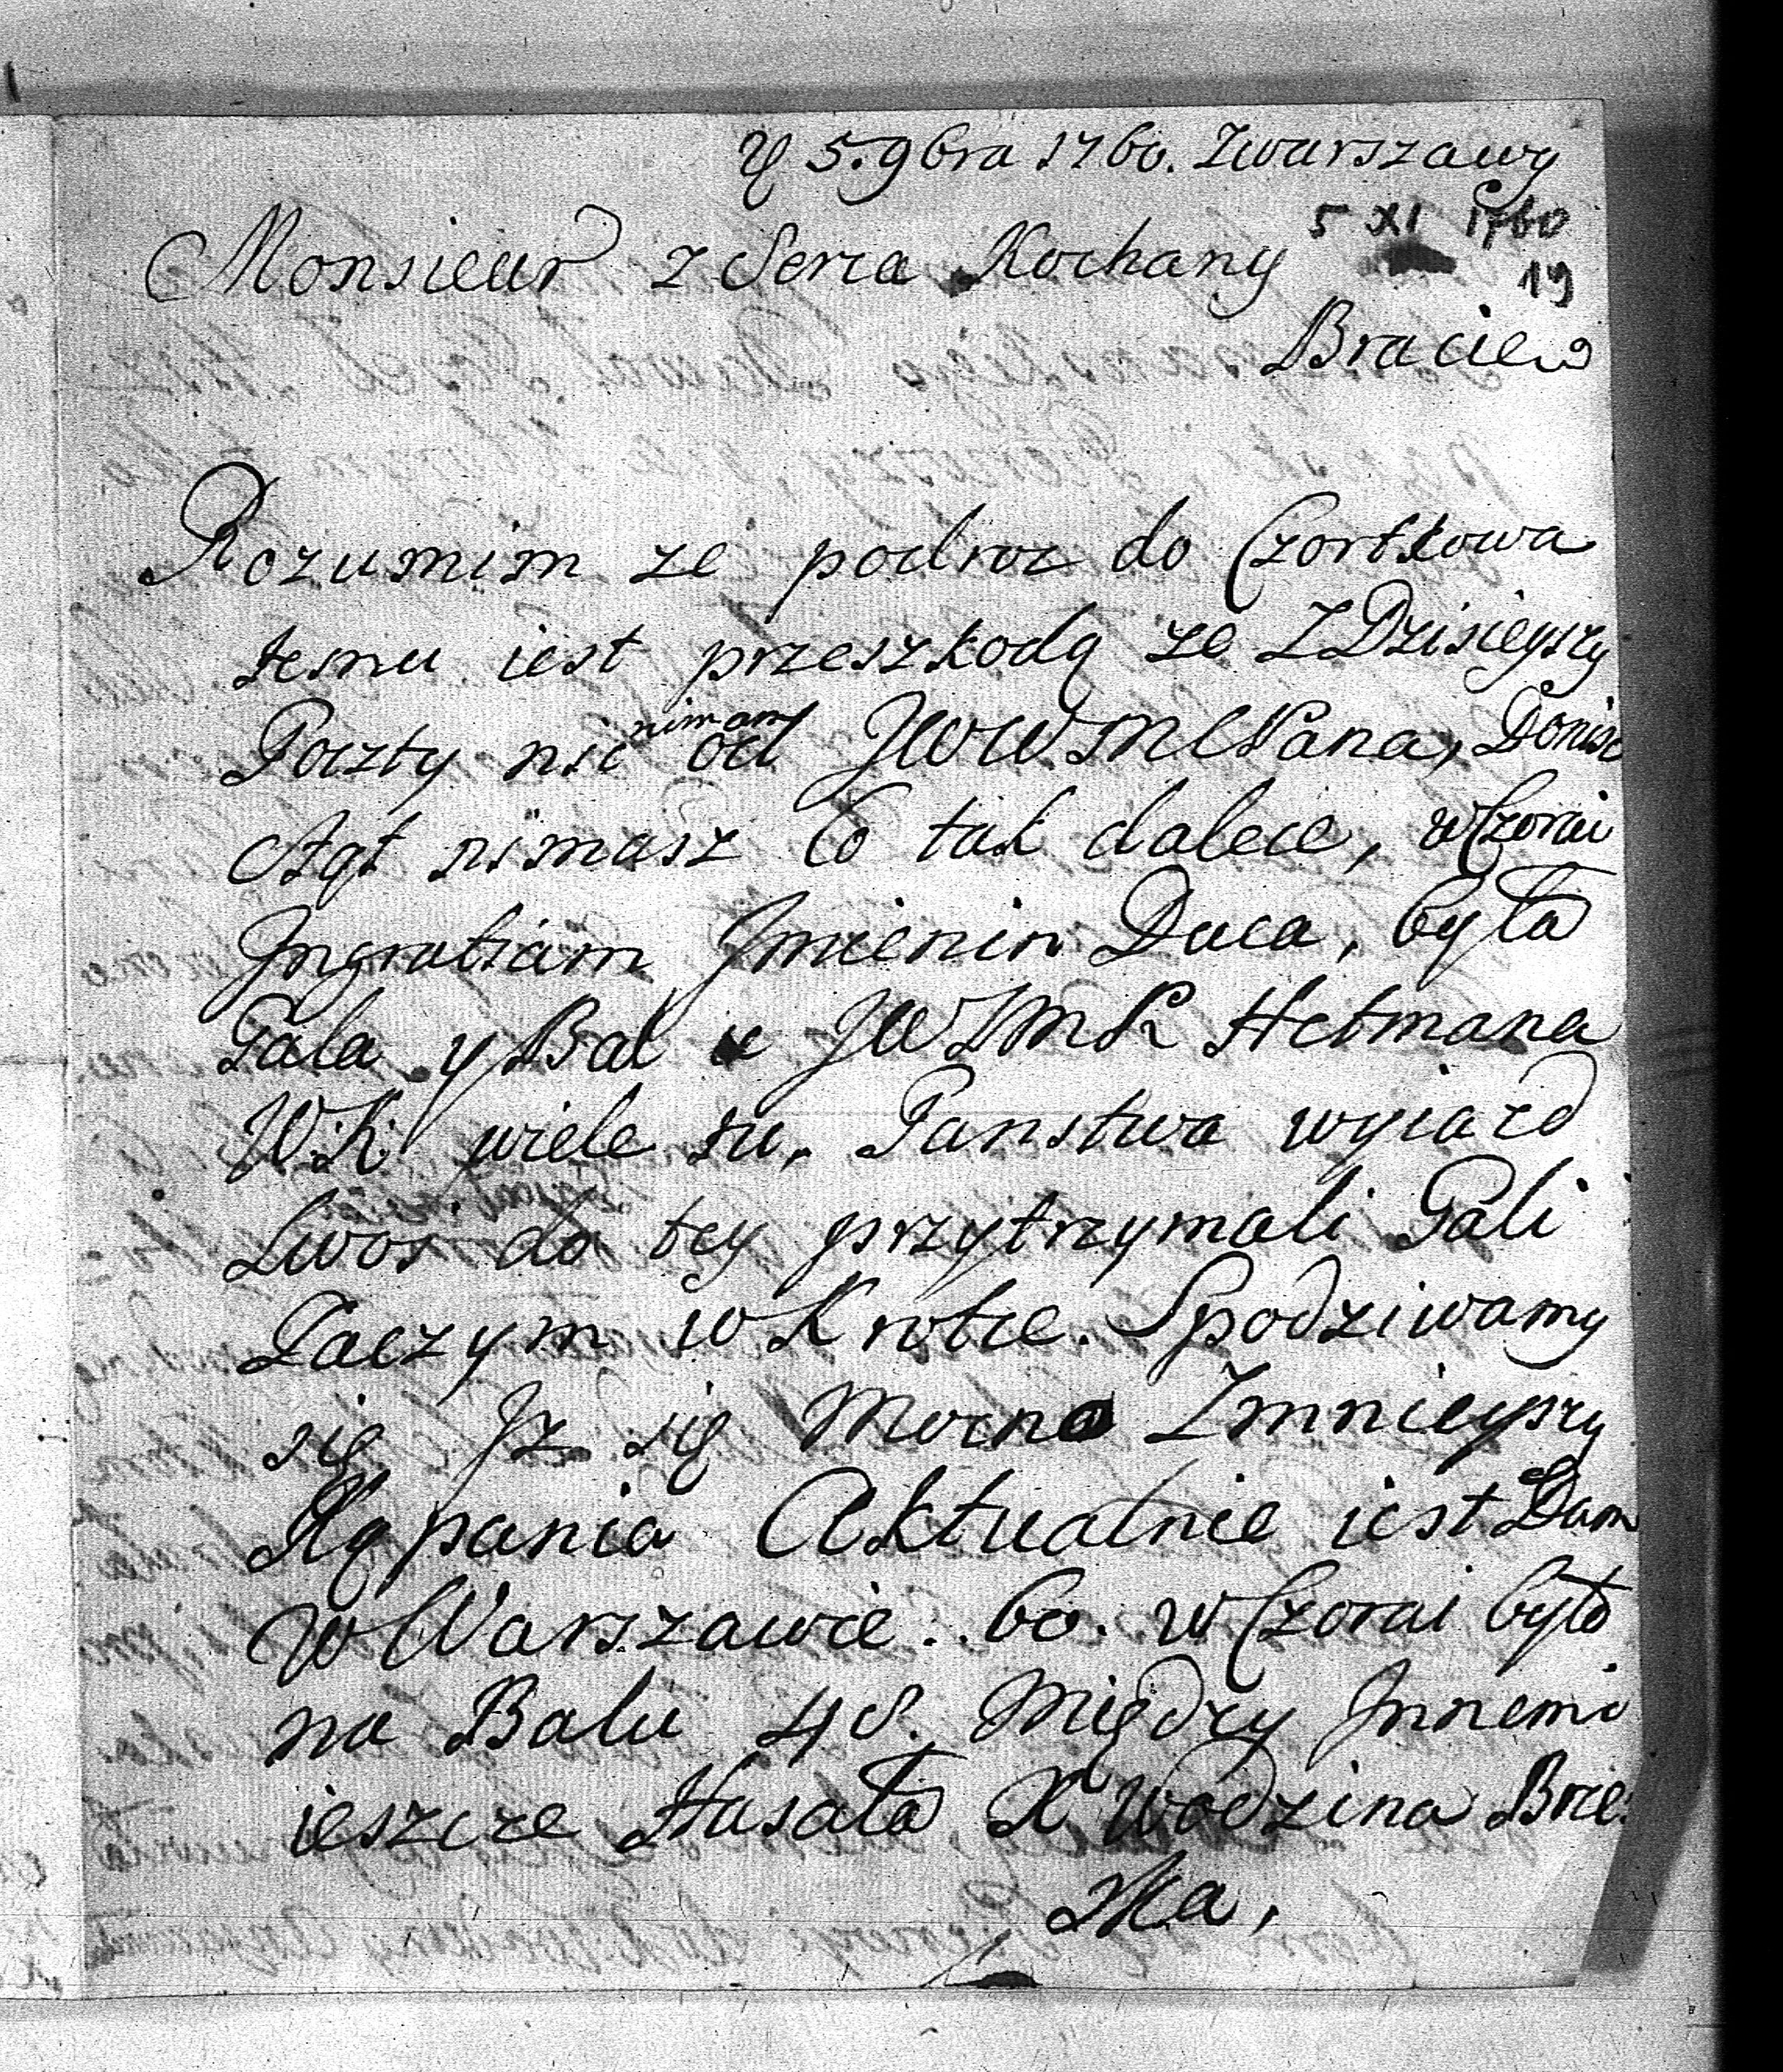 5. 9bra 1760. Zwarszawy
5 XI 1760
Monsieur z Serca Kochany
19
Bracie
Rozumim ze podroz do Czortkowa
temu iest przeszkodą ze Z Dzisieyszy
Poczty nic nimam od JWWMCPana, Donisc
stąt nimasz Co tak dalece, wCzorai
Ingratiam Jmienin Duca, była
Gala y Bal u JWJMP Hetmana
WK wiele tu Panstwa wyiazd
swoi do tey przytrzymali Gali
Zaczym wKrotce Spodziwamy
się Jz się Mocno Zmnieyszy
Kąpania Aktualnie iest Dam
w Warszawie. bo. wCzorai było
na Balu 48. Między Jnnemi
ieszcze Husała X Wodzina Brze:
ska,